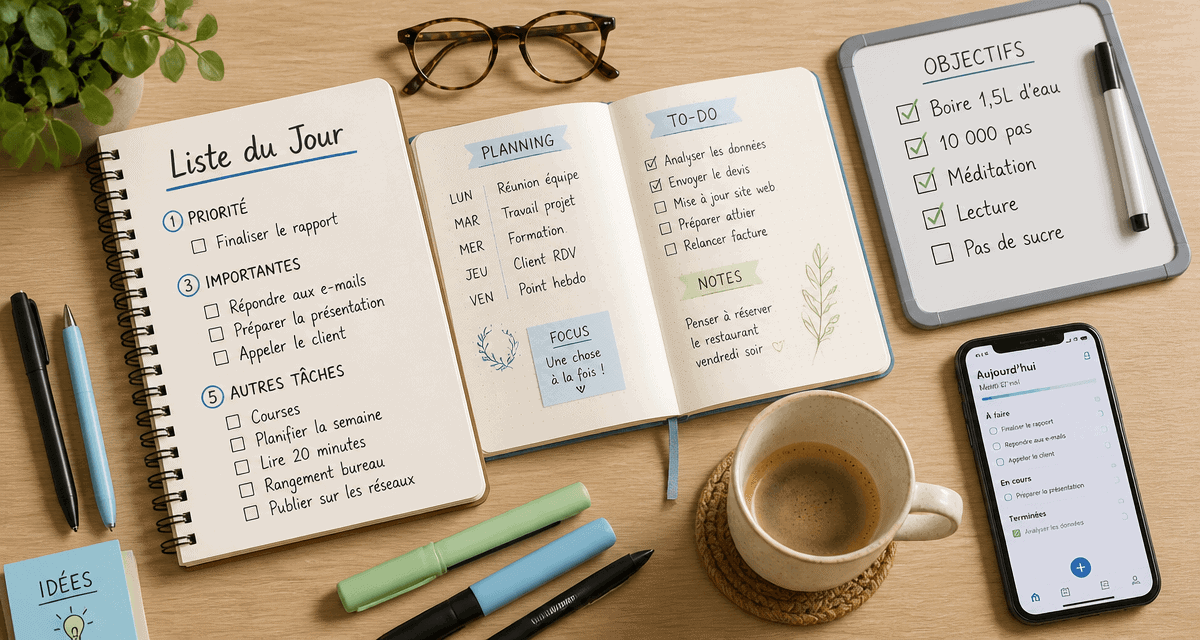 Liste du Jour
1 PRIORITÉ
Finaliser le rapport
3 IMPORTANTES
Répondre aux e-mails
Préparer la présentation
Appeler le client
5 AUTRES TÂCHES
Courses
Planifier la semaine
Lire 20 minutes
Rangement bureau
Publier sur les réseaux
IDÉES
PLANNING
LUN Réunion équipe
MAR Travail projet
MER Formation.
JEU Client RDV
VEN Point hebdo
FOCUS
Une chose
à la fois !
TO-DO
Analyser les données
Envoyer le devis
Mise à jour site web
Préparer
Relancer facture
NOTES
Penser à réserver
le restaurant
vendredi soir
OBJECTIFS
Boire 1,5L d'eau
10 000 pas
Méditation
Lecture
Pas de sucre
Aujourd'hui
À faire
Finaliser le rapport
Répondre aux e-mails
Appeler le client
En cours
Préparer la présentation
Terminées
Analyser les données